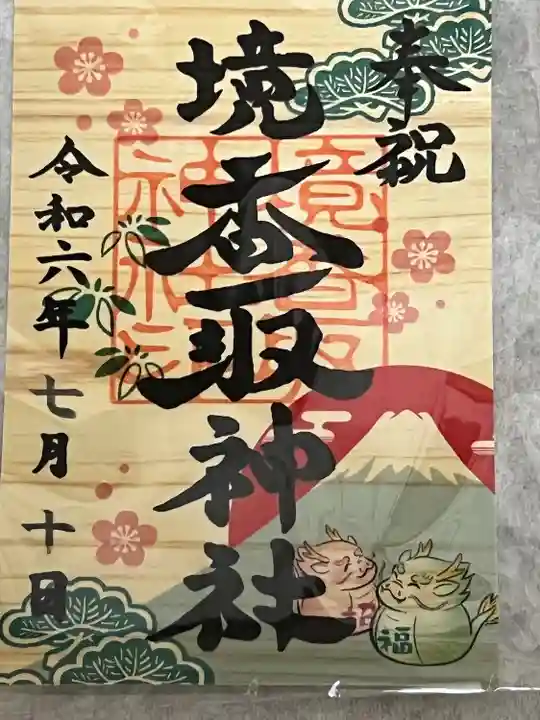 奉祝
境香取神社
令和六年七月十日
招
福